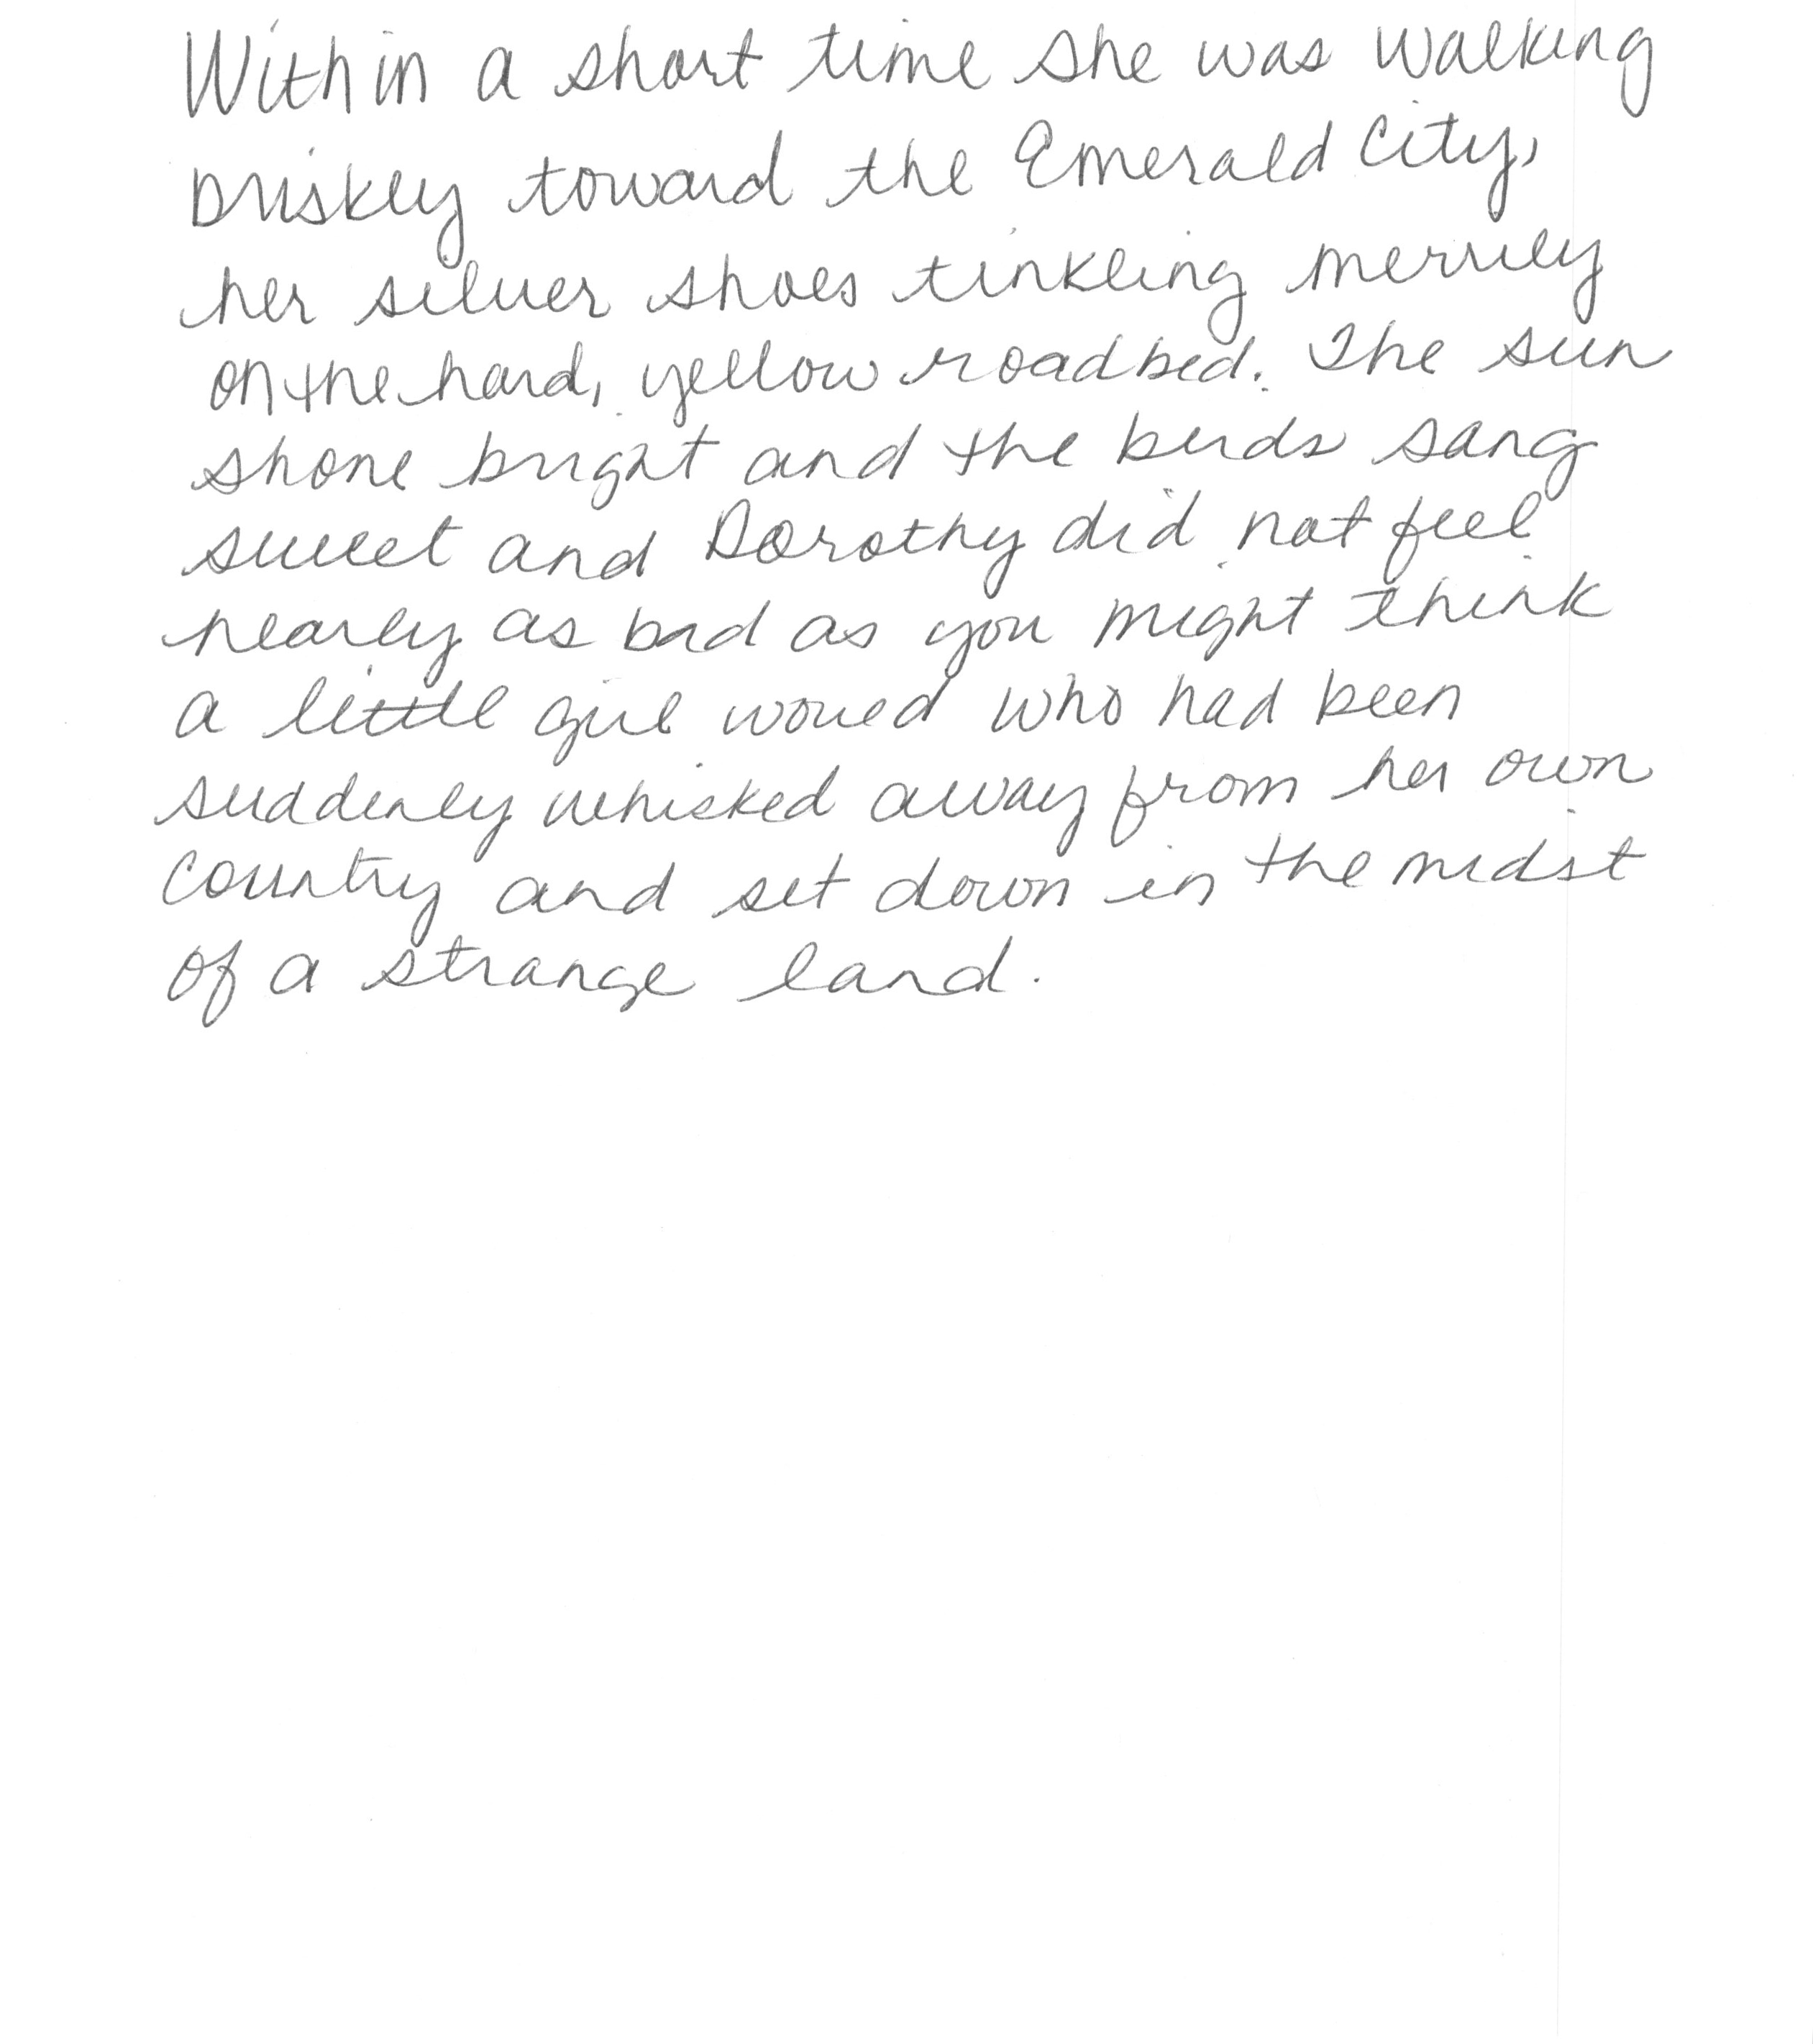 Within a short time she was walking
briskly toward the Emerald City,
her silver shoes tinkling merrily
on the hard, yellow roadbed. The sun
shone bright and the birds sang
sweet and Dorothy did not feel
nearly as bad as you might think
a little girl would who had been
suddenly whisked away from her own
country and set down in the midst
of a strange land.